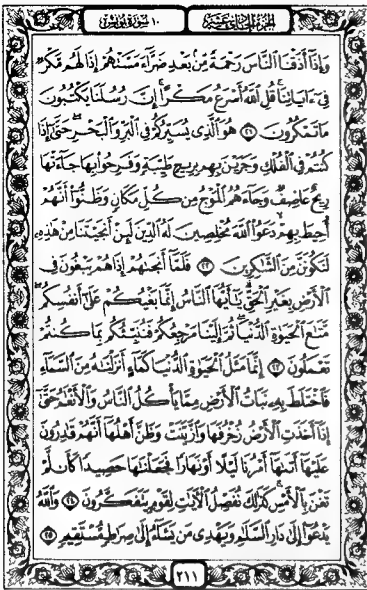 الجزء الحادي عشر
١٠ سورة يونس
وَإِذَآ أَذَقْنَا ٱلنَّاسَ رَحْمَةً مِّنۢ بَعْدِ ضَرَّآءَ مَسَّتْهُمْ إِذَا لَهُم مَّكْرٌ
فِىٓ ءَايَاتِنَا ۚ قُلِ ٱللَّهُ أَسْرَعُ مَكْرًا ۚ إِنَّ رُسُلَنَا يَكْتُبُونَ
مَا تَمْكُرُونَ ٢١ هُوَ ٱلَّذِى يُسَيِّرُكُمْ فِى ٱلْبَرِّ وَٱلْبَحْرِ ۖ حَتَّىٰٓ إِذَا
كُنتُمْ فِى ٱلْفُلْكِ وَجَرَيْنَ بِهِم بِرِيحٍ طَيِّبَةٍ وَفَرِحُوا۟ بِهَا جَآءَتْهَا
رِيحٌ عَاصِفٌ وَجَآءَهُمُ ٱلْمَوْجُ مِن كُلِّ مَكَانٍ وَظَنُّوٓا۟ أَنَّهُمْ
أُحِيطَ بِهِمْ ۙ دَعَوُا۟ ٱللَّهَ مُخْلِصِينَ لَهُ ٱلدِّينَ لَئِنْ أَنجَيْتَنَا مِنْ هَٰذِهِۦ
لَنَكُونَنَّ مِنَ ٱلشَّٰكِرِينَ ٢٢ فَلَمَّآ أَنجَىٰهُمْ إِذَا هُمْ يَبْغُونَ فِى
ٱلْأَرْضِ بِغَيْرِ ٱلْحَقِّ ۗ يَٰٓأَيُّهَا ٱلنَّاسُ إِنَّمَا بَغْيُكُمْ عَلَىٰٓ أَنفُسِكُم ۖ
مَّتَٰعَ ٱلْحَيَوٰةِ ٱلدُّنْيَا ۖ ثُمَّ إِلَيْنَا مَرْجِعُكُمْ فَنُنَبِّئُكُم بِمَا كُنتُمْ
تَعْمَلُونَ ٢٣ إِنَّمَا مَثَلُ ٱلْحَيَوٰةِ ٱلدُّنْيَا كَمَآءٍ أَنزَلْنَٰهُ مِنَ ٱلسَّمَآءِ
فَٱخْتَلَطَ بِهِۦ نَبَاتُ ٱلْأَرْضِ مِمَّا يَأْكُلُ ٱلنَّاسُ وَٱلْأَنْعَٰمُ حَتَّىٰٓ
إِذَآ أَخَذَتِ ٱلْأَرْضُ زُخْرُفَهَا وَٱزَّيَّنَتْ وَظَنَّ أَهْلُهَآ أَنَّهُمْ قَٰدِرُونَ
عَلَيْهَآ أَتَىٰهَآ أَمْرُنَا لَيْلًا أَوْ نَهَارًا فَجَعَلْنَٰهَا حَصِيدًا كَأَن لَّمْ
تَغْنَ بِٱلْأَمْسِ ۚ كَذَٰلِكَ نُفَصِّلُ ٱلْآيَٰتِ لِقَوْمٍ يَتَفَكَّرُونَ ٢٤ وَٱللَّهُ
يَدْعُوٓا۟ إِلَىٰ دَارِ ٱلسَّلَٰمِ وَيَهْدِى مَن يَشَآءُ إِلَىٰ صِرَٰطٍ مُّسْتَقِيمٍ ٢٥
٢١١